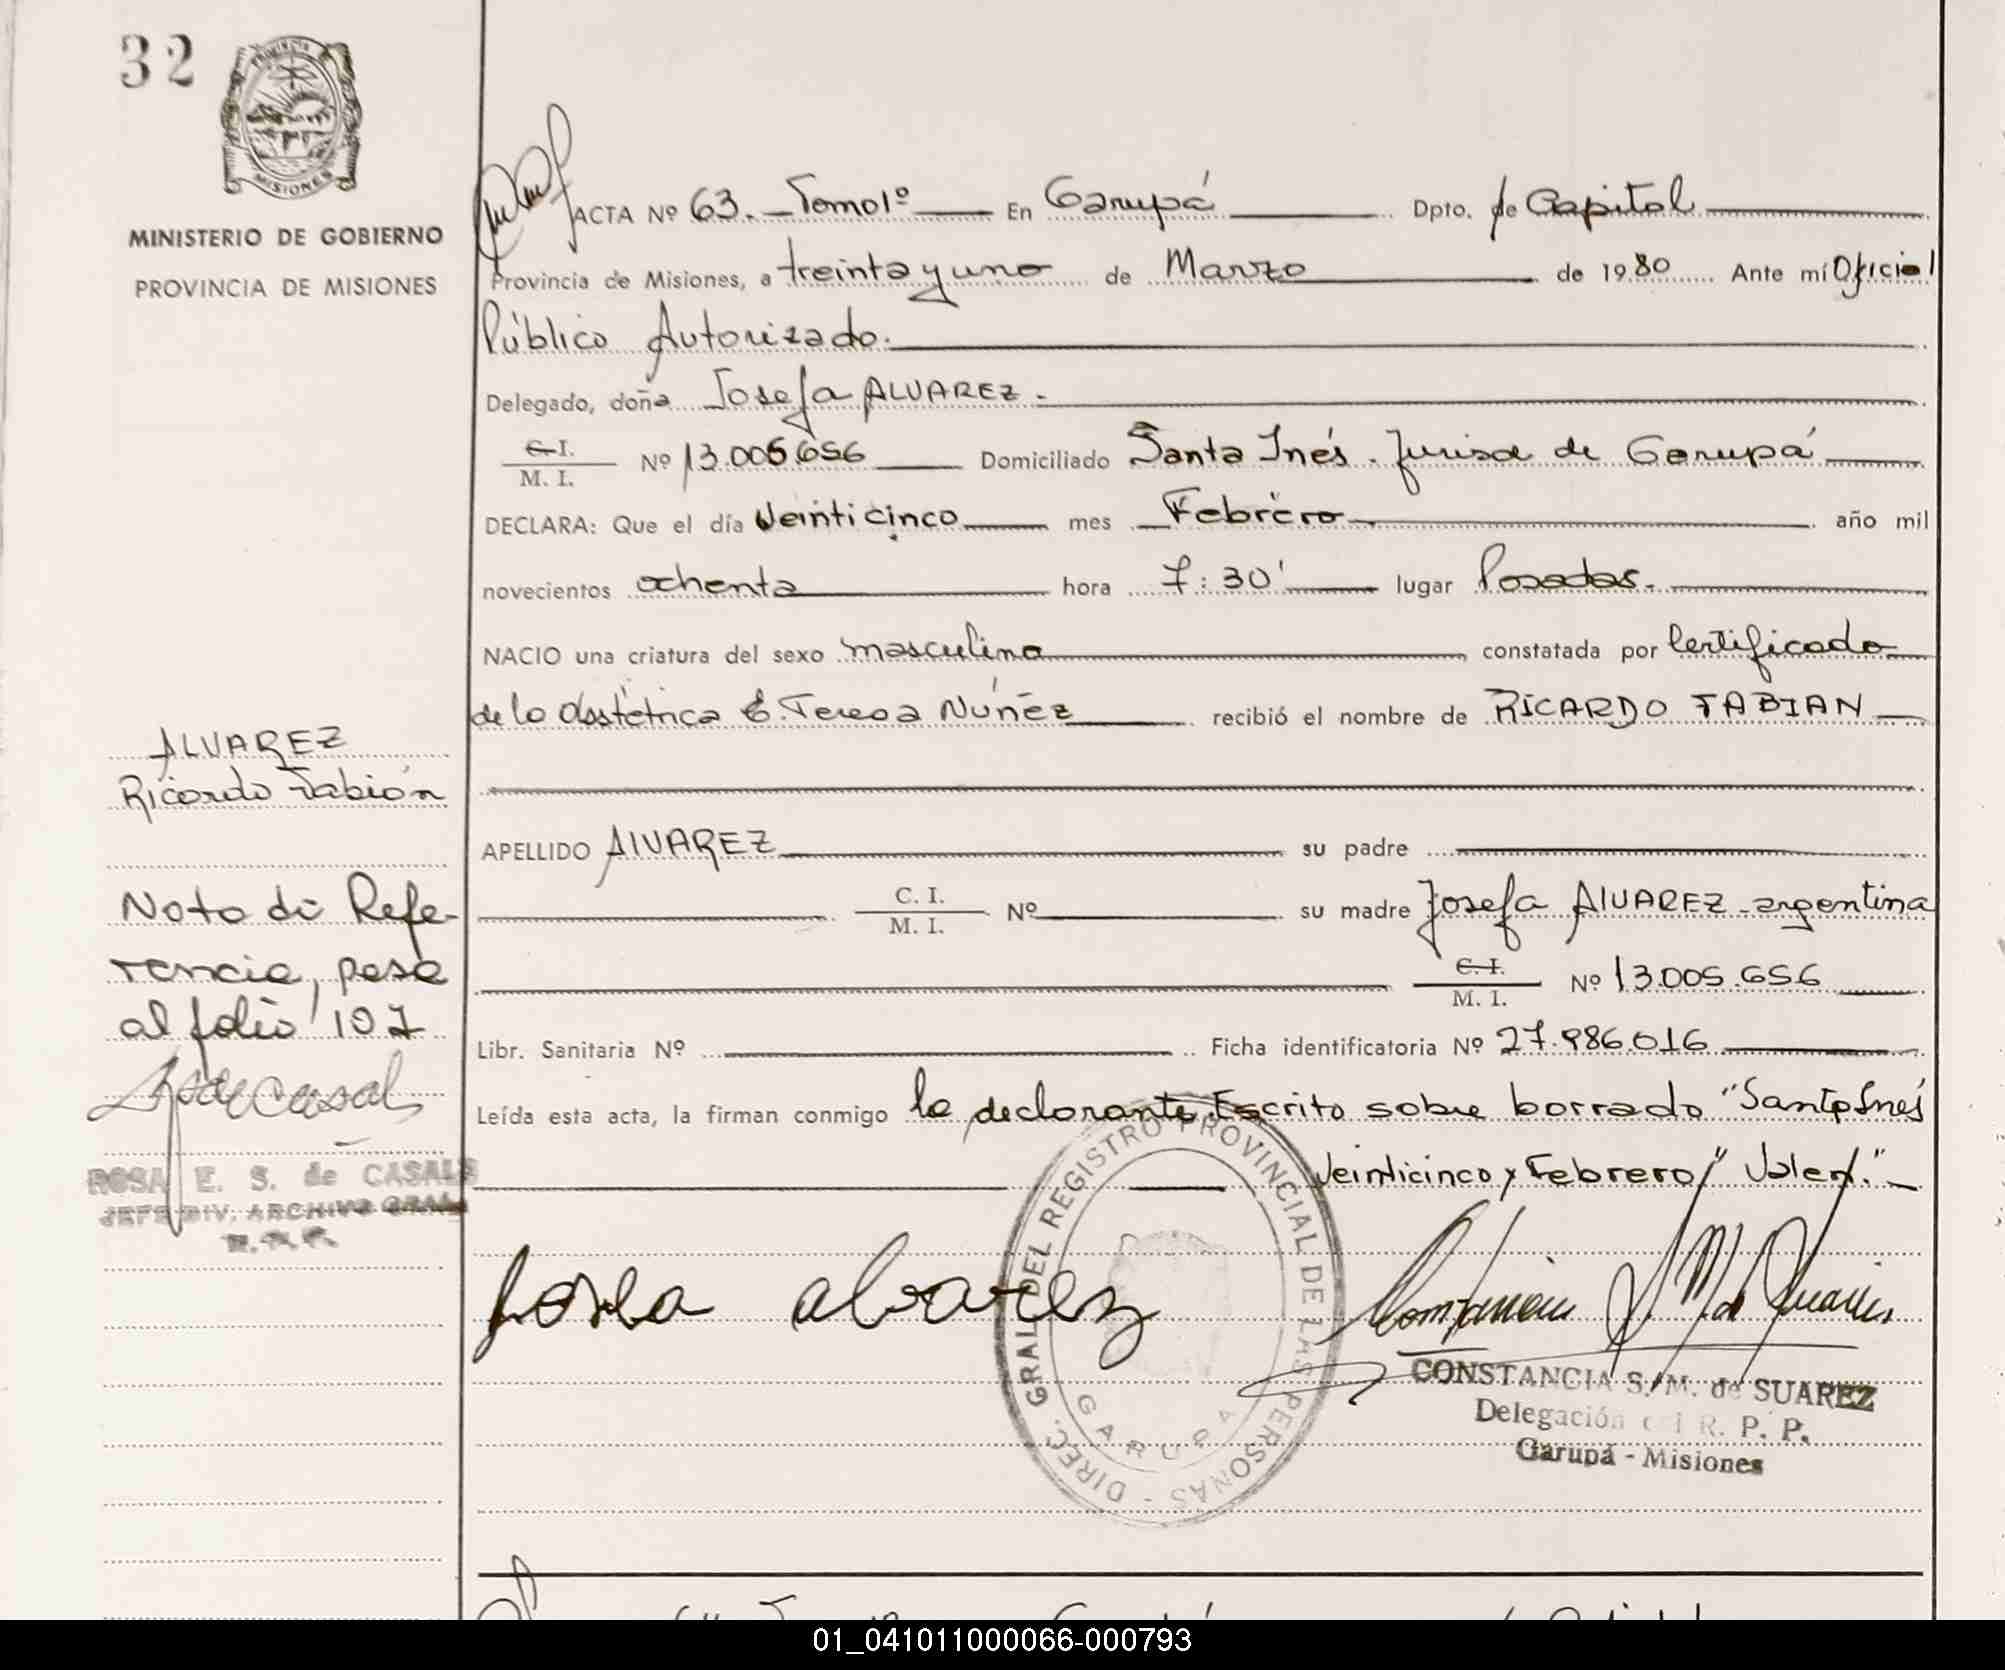 32
PROVINCIA
MISIONES
MINISTERIO DE GOBIERNO
PROVINCIA DE MISIONES
ACTA Nº 63. Tomo 1º En Garupá Dpto. de Capital
Provincia de Misiones, a treinta y uno de Marzo de 1980 Ante mí Oficial
Público Autorizado.
Delegado, doña Josefa ALVAREZ.
C.I.
M. I. Nº 13.005.656 Domiciliado Santa Inés. Jurisd de Garupá
DECLARA: Que el día Veinticinco mes Febrero año mil
novecientos ochenta hora 7:30' lugar Posadas.
NACIO una criatura del sexo masculino constatada por Certificado
de la Obstétrica E. Teresa Núñez recibió el nombre de RICARDO FABIAN
ALVAREZ
Ricardo Fabián
APELLIDO ALVAREZ su padre
C. I.
M. I. Nº su madre Josefa ALVAREZ argentina
C. I.
M. I. Nº 13.005.656
Nota de Refe-
rencia, pase
al folio 107
Libr. Sanitaria Nº Ficha identificatoria Nº 27.986.016
Leída esta acta, la firman conmigo la declarante. Escrito sobre borrado "Santa Inés
Veinticinco y Febrero" Valen."
ROSA E. S. de CASALS
JEFE DIV. ARCHIVO GRAL.
Josefa alvarez
Constancia S. M. de Suarez
DIREC. GRAL. DEL REGISTRO PROVINCIAL DE LAS PERSONAS -
GARUPA
CONSTANCIA S. M. de SUAREZ
Delegación del R. P. P.
Garupá - Misiones
01_041011000066-000793